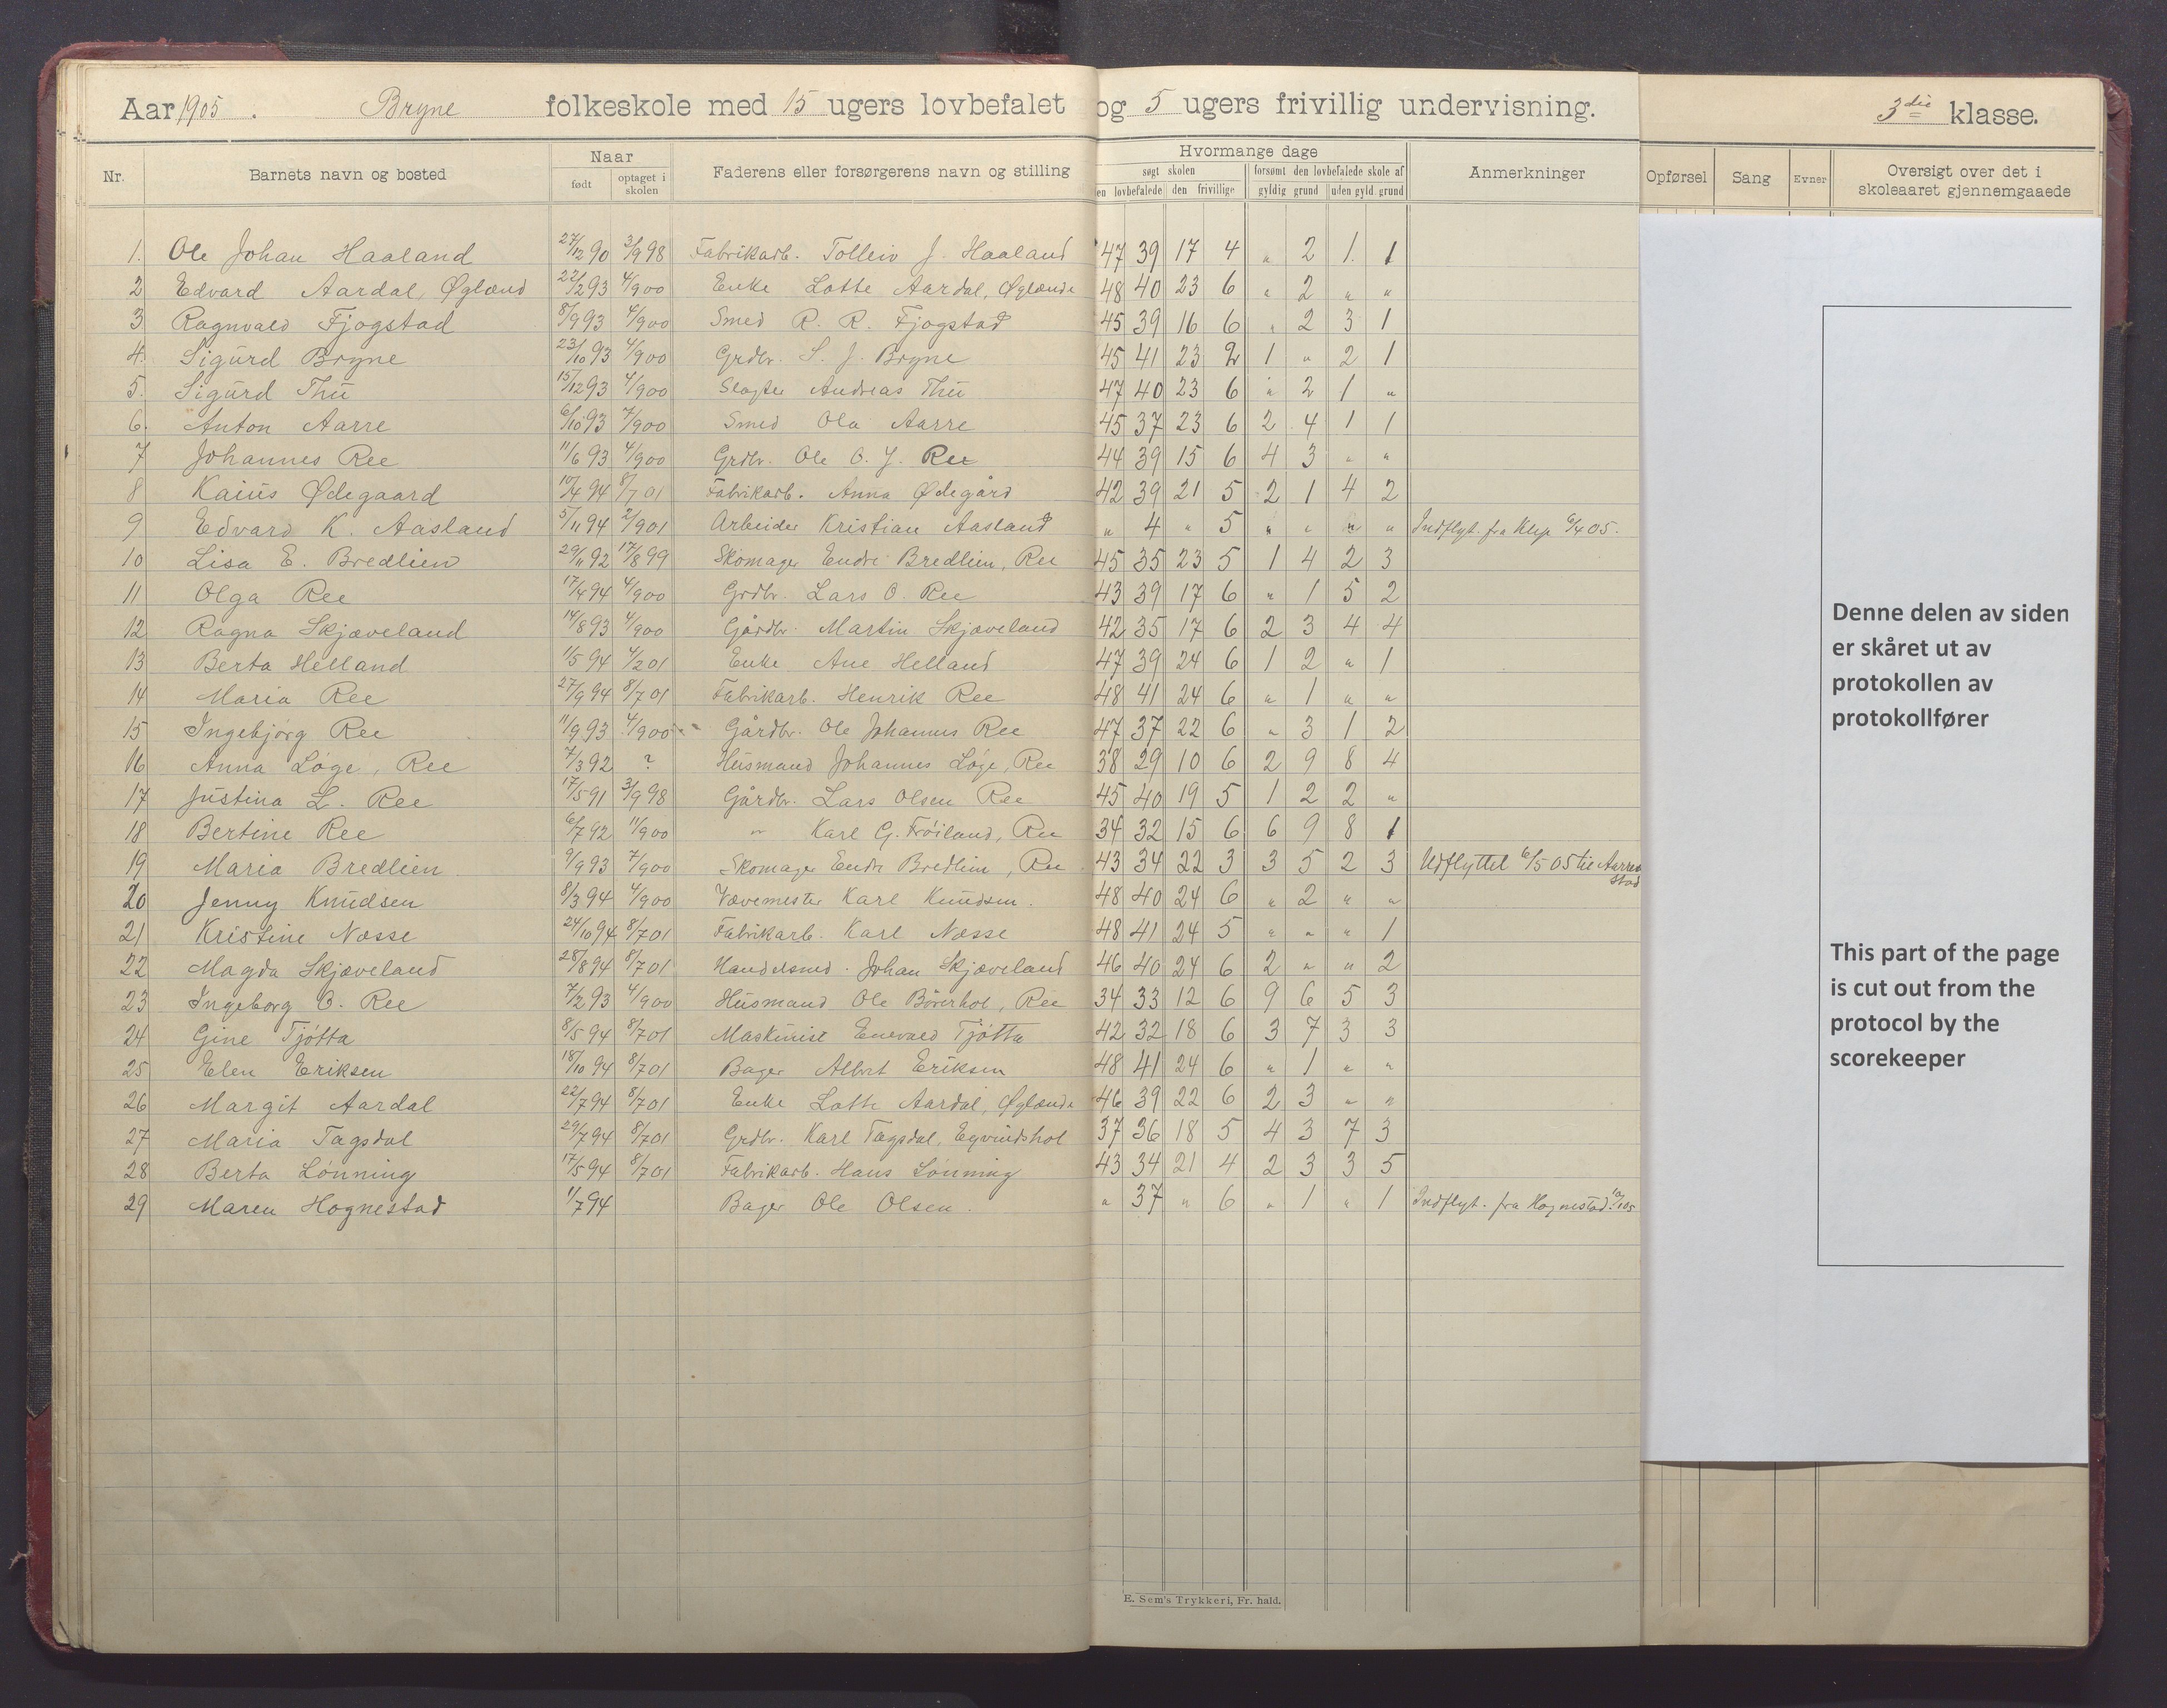 Aar 1905. Bryne folkeskole med 15 ugers lovbefalet og 5 ugers frivillig undervisning. 3die klasse.
Nr. Barnets navn og bosted Naar født optaget i skolen Faderens eller forsørgerens navn og stilling Hvormange dage søgt skolen den lovbefalede den frivillige forsømt den lovbefalede skole af gyldig grund uden gyld grund Anmerkninger Opførsel Sang Evner Oversigt over det i skoleaaret gjennemgaaede
1. Ole Johan Haaland 27/12 90 3/9 98 Fabrikarb. Tolleiv J. Haaland 47 39 17 4 " 2 1. 1
2 Edvard Aardal, Øglænd 22/2 93 4/9 00 Enke Lotte Aardal, Øglænde 48 40 23 6 " 2 " "
3 Ragnvald Fjogstad 8/9 93 4/9 00 Smed R. R. Fjogstad 45 39 16 6 " 2 3 1
4. Sigurd Bryne 23/10 93 4/9 00 Grdbr. S. J. Bryne 45 41 23 2 1 " 2 1
5. Sigurd Thu 15/12 93 4/9 00 Slagter Andreas Thu 47 40 23 6 " 2 1 "
6. Anton Aarre 6/10 93 7/9 00 Smed Ola Aarre 45 37 23 6 2 4 1 1
7 Johannes Ree 11/6 93 4/9 00 Grdbr. Ole O. J. Ree 44 39 15 6 4 3 " "
8 Kaius Ødegaard 10/4 94 8/7 01 Fabrikarb. Anna Ødegård 42 39 21 5 2 1 4 2
9 Edvard K. Aasland 5/11 94 2/9 01 Arbeider Kristian Aasland " 4 " 5 " " " " Indflyt. fra Klep 6/4 05.
10 Lisa E. Bredlien 29/11 92 17/8 99 Skomager Endre Bredlien, Ree 45 35 23 5 1 4 2 3
11 Olga Ree 17/4 94 4/9 00 Grdbr. Lars O. Ree 43 39 17 6 " 1 5 2
12 Ragna Skjæveland 14/8 93 4/9 00 Gårdbr. Martin Skjæveland 42 35 17 6 2 3 4 4
13 Berta Helland 1/5 94 4/2 01 Enke Ane Helland 47 39 24 6 1 2 " 1
14 Maria Ree 27/9 94 8/7 01 Fabrikarb. Henrik Ree 48 41 24 6 " 1 " "
15 Ingebjørg Ree 11/9 93 4/9 00 Gårdbr. Ole Johannes Ree 47 37 22 6 " 3 1 2
16 Anna Løge, Ree 7/3 92 ? Husmand Johannes Løge, Ree 38 29 10 6 2 9 8 4
17 Justina L. Ree 17/5 91 3/9 98 Gårdbr. Lars Olsen Ree 45 40 19 5 1 2 2 "
18 Bertine Ree 6/7 92 11/9 00 " Karl G. Frøiland, Ree 34 32 15 6 6 9 8 1
19 Maria Bredlien 9/9 93 7/9 00 Skomager Endre Bredlien, Ree 43 34 22 3 3 5 2 3 Udflyttet 6/5 05 til Aarrestad
20 Jenny Knudsen 8/3 94 4/9 00 Vævemester Karl Knudsen. 48 40 24 6 " 2 " "
21 Kristine Næsse 24/10 94 8/7 01 Fabrikarb. Karl Næsse 48 41 24 5 " " " 1
22 Magda Skjæveland 28/8 94 8/7 01 Handelsmd. Johan Skjæveland 46 40 24 6 2 " " 2
23 Ingeborg O. Ree 7/2 93 4/9 00 Husmand Ole Ree 34 33 12 6 9 6 5 3
24 Gine Tjøtta 8/5 94 8/7 01 Maskinist Enevald Tjøtta 42 32 18 6 3 7 3 3
25 Elen Eriksen 18/10 94 8/7 01 Bager Albert Eriksen 48 41 24 6 " 1 " "
26 Margit Aardal 22/7 94 8/7 01 Enke Lotte Aardal, Øglænde 46 39 22 6 2 3 " "
27 Maria Tagsdal 29/7 94 8/7 01 Grdbr. Karl Tagsdal, Eyvindshol 37 36 18 5 4 3 7 3
28 Berta Lønning 17/5 94 8/7 01 Fabrikarb. Hans Lønning 43 34 21 4 2 3 3 5
29 Maren Hognestad 1/7 94 Bager Ole Olsen. " 37 " 6 " 1 " 1 Indflyt. fra Hognestad
E. Sem's Trykkeri, Fr. hald.
Denne delen av siden
er skåret ut av
protokollen av
protokollfører
This part of the page
is cut out from the
protocol by the
scorekeeper